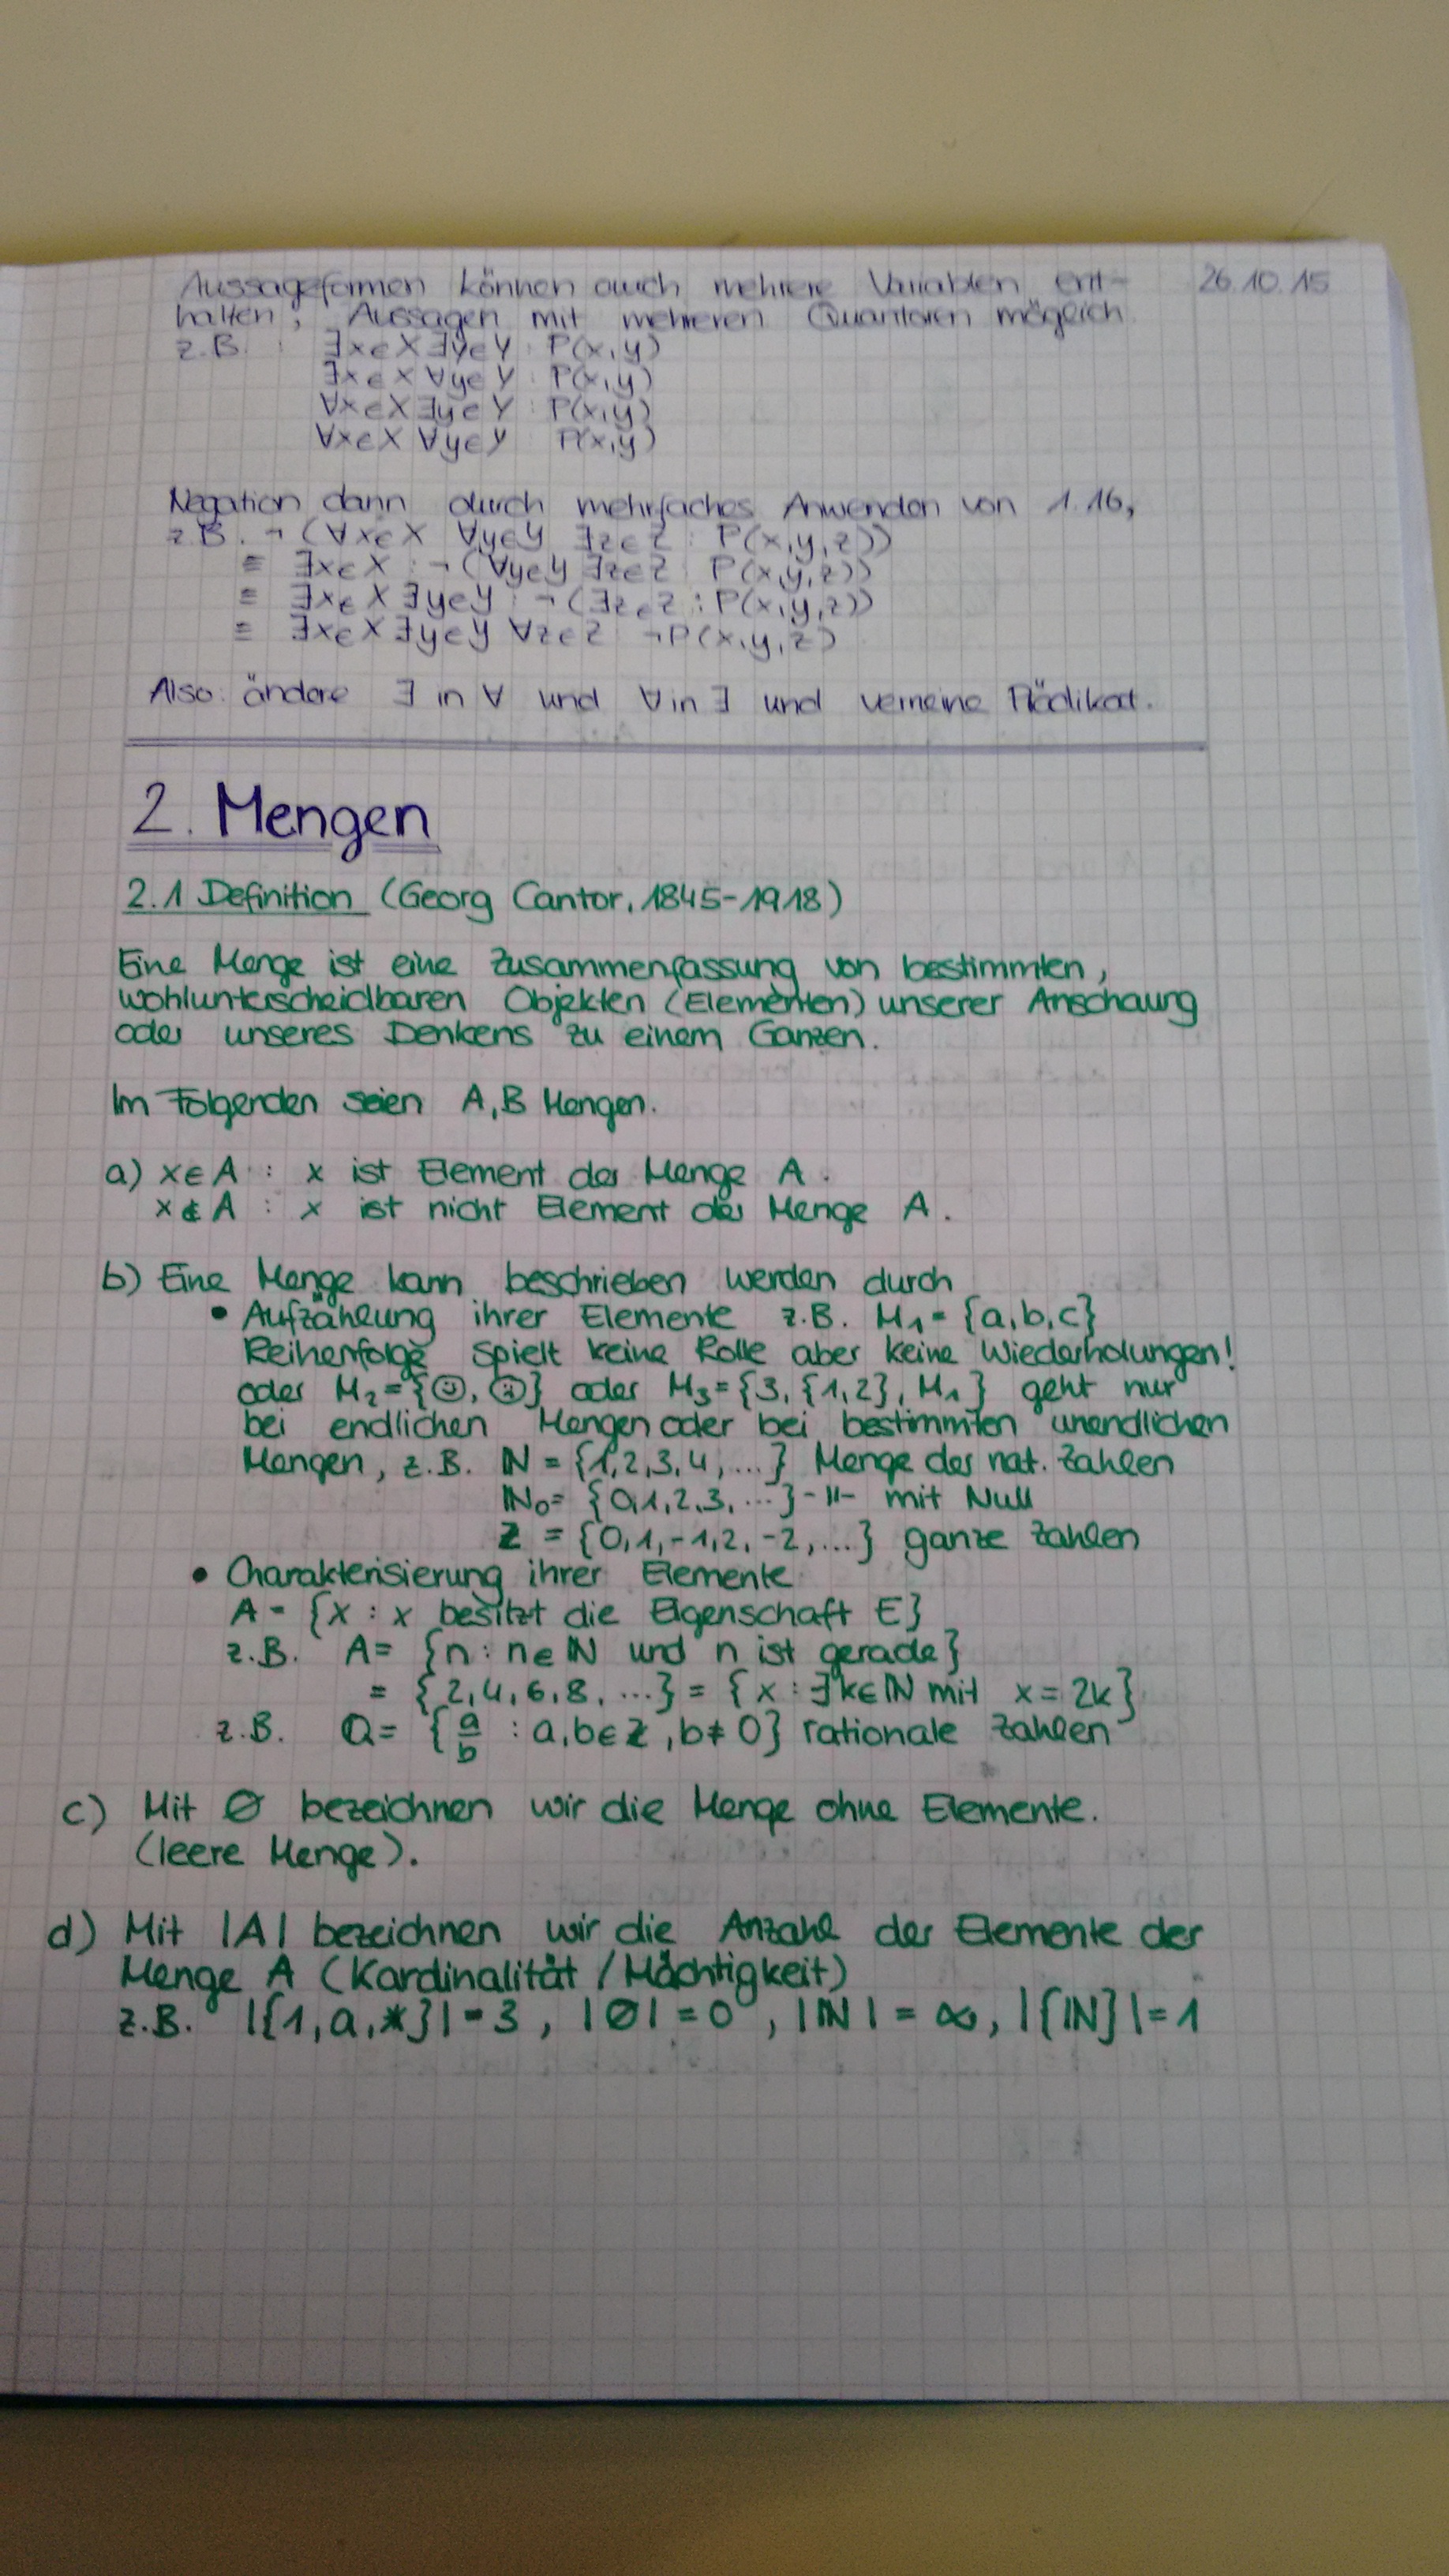 26.10.15
Aussageformen können auch mehrere Variablen ent-
halten, Aussagen mit mehreren Quantoren möglich
z.B. : ∃x∈X ∃y∈Y : P(x,y)
∃x∈X ∀y∈Y : P(x,y)
∀x∈X ∃y∈Y : P(x,y)
∀x∈X ∀y∈Y P(x,y)
Negation dann durch mehrfaches Anwenden von 1.16,
z.B. ¬(∀x∈X ∀y∈Y ∃z∈Z : P(x,y,z))
≡ ∃x∈X : ¬(∀y∈Y ∃z∈Z : P(x,y,z))
≡ ∃x∈X ∃y∈Y : ¬(∃z∈Z : P(x,y,z))
≡ ∃x∈X ∃y∈Y ∀z∈Z ¬P(x,y,z)
Also: ändere ∃ in ∀ und ∀ in ∃ und verneine Prädikat.
2. Mengen
2.1 Definition (Georg Cantor, 1845-1918)
Eine Menge ist eine Zusammenfassung von bestimmten,
wohlunterscheidbaren Objekten (Elementen) unserer Anschaung
oder unseres Denkens zu einem Ganzen.
Im Folgenden seien A,B Mengen.
a) x∈A : x ist Element der Menge A.
x∉A : x ist nicht Element der Menge A.
b) Eine Menge kann beschrieben werden durch
• Aufzählung ihrer Elemente z.B. M₁ = {a,b,c}
Reihenfolge spielt keine Rolle aber keine Wiederholungen!
oder M₂ = {☺, ☹} oder M₃ = {3, {1,2}, M₁} geht nur
bei endlichen Mengen oder bei bestimmten unendlichen
Mengen, z.B. ℕ = {1,2,3,4,...} Menge der nat. Zahlen
ℕ₀ = {0,1,2,3,...} -"- mit Null
ℤ = {0,1,-1,2,-2,...} ganze Zahlen
• Charakterisierung ihrer Elemente
A = {x : x besitzt die Eigenschaft E}
z.B. A = {n : n∈ℕ und n ist gerade}
= {2,4,6,8,...} = {x : ∃k∈ℕ mit x = 2k}
z.B. ℚ = {a/b : a,b∈ℤ, b≠0} rationale Zahlen
c) Mit ∅ bezeichnen wir die Menge ohne Elemente.
(leere Menge).
d) Mit |A| bezeichnen wir die Anzahl der Elemente der
Menge A (Kardinalität / Mächtigkeit)
z.B. |{1,a,*}| = 3, |∅| = 0, |ℕ| = ∞, |{ℕ}| = 1